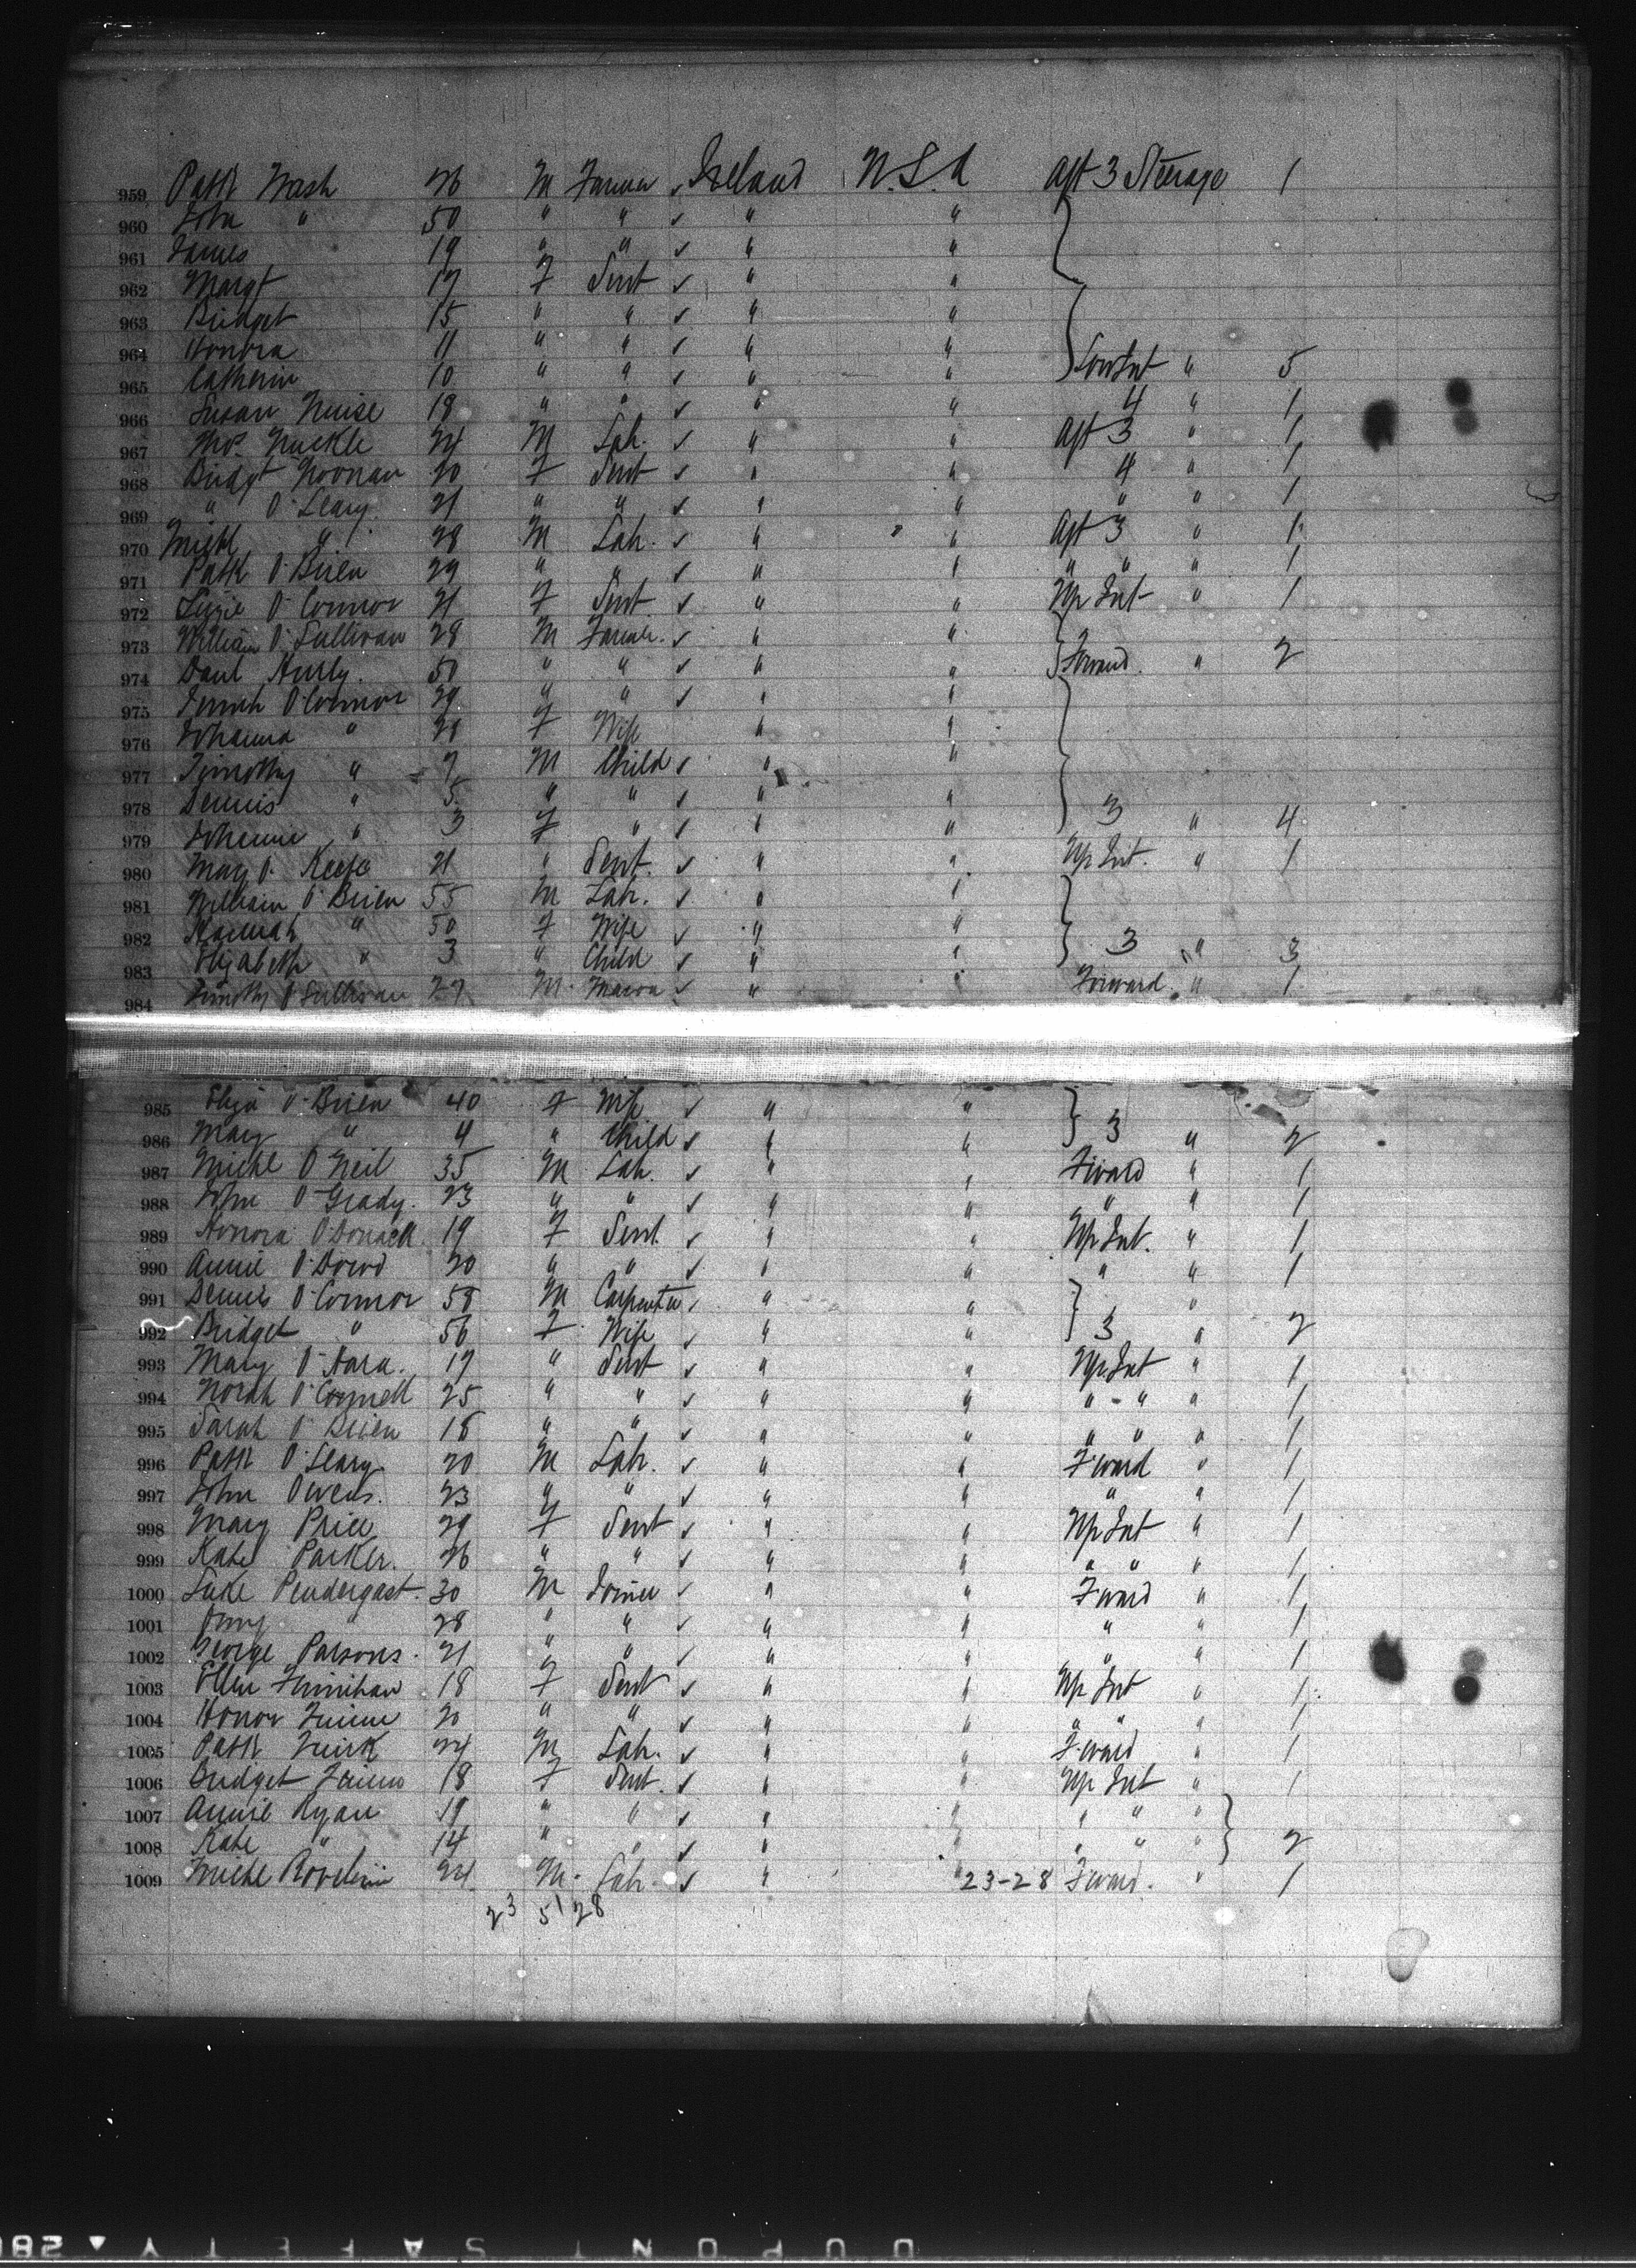 959 Patk Nash 26 M Farmer ✓ Ireland U.S.A Aft 3 Steerage 1
960 John " 50 " " ✓ " "
961 James 19 " " ✓ " "
962 Margt 17 F Servt ✓ " "
963 Bridget 15 " " ✓ " "
964 Honora 11 " " ✓ " "
965 Catherin 10 " " ✓ " " Low Int " 5
966 Susan 18 " " ✓ " " 4 " 1
967 Thos. 24 M Lab. ✓ " " Aft 3 " 1
968 Bridgt Noonan 20 F Servt ✓ " " 4 " 1
969 " O'Leary 21 " " ✓ " " " " 1
970 Michl " 28 M Lab. ✓ " " Aft 3 " 1
971 Patk O'Brien 29 " " ✓ " " " " " 1
972 Lizzie O'Connor 21 F Servt ✓ " " Up Int " 1
973 William O'Sullivan 28 M Farmer ✓ " "
974 Danl Hurly. 50 " " ✓ " " Forward. " 2
975 O'Connor 29 " " ✓ " "
976 Johanna " 28 F Wife " "
977 Timothy " 7 M Child ✓ " "
978 Dennis " 5 " " ✓ " "
979 Johannie " 3 F " ✓ " " 3 " 4
980 Mary O'Keefe 21 " Servt. ✓ " " Up Int. " 1
981 William O'Brien 55 M Lab. ✓ " "
982 Hannah " 50 F Wife ✓ " "
983 Elizabeth " 3 " Child ✓ " " 3 " 3
984 Timothy O'Sullivan 27 M. Mason ✓ " Forward " 1
985 Eliza O'Brien 40 F Wife ✓ " "
986 Mary " 4 " Child ✓ " " 3 " 2
987 Michl O'Neil 35 M Lab. ✓ " " F'ward " 1
988 John O'Grady. 23 " " ✓ " " " " 1
989 Honora 19 F Servt. ✓ " " Up Int. " 1
990 Annie O'Dowd 20 " " ✓ " " " " 1
991 Dennis O'Connor 58 M Carpenter ✓ " " "
992 Bridget " 56 F Wife ✓ " " 3 " 2
993 Mary O'Hara. 17 " Servt ✓ " " Up Int " 1
994 Norah O'Connell 25 " " ✓ " " " - " " 1
995 Sarah O'Brien 18 " " ✓ " " " " " 1
996 Patk O'Leary 20 M Lab. ✓ " " F'ward " 1
997 John Owens. 23 " " ✓ " " " " 1
998 Mary Price 29 F Servt ✓ " " Up Int " 1
999 Kate Parker. 26 " " ✓ " " " " 1
1000 Luke Pendergast. 30 M Joiner ✓ " " F'ward " 1
1001 " 28 " " ✓ " " " " 1
1002 George Parsons. 21 " " ✓ " " " " 1
1003 Ellen 18 F Servt ✓ " " Up Int " 1
1004 Honor 20 " " ✓ " " " " 1
1005 Patk Quirk 24 M Lab. ✓ " " F'ward " 1
1006 Bridget 18 F Servt. ✓ " " Up Int " 1
1007 Annie Ryan 19 " " ✓ " " " " "
1008 Kate " 14 " " ✓ " " " " " 2
1009 Michl 24 M. Lab ✓ " " 23-28 F'ward. " 1
23 51 28
DUPONT SAFETY ▲ 28